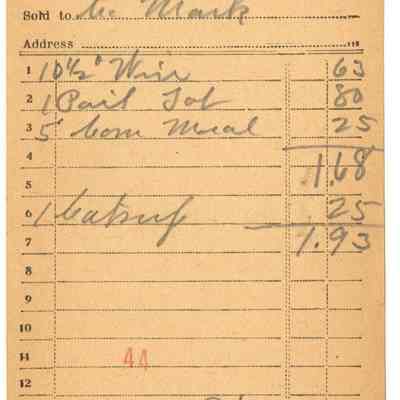 Sold to Mc Mark
Address
1 10½" Wire 63
2 1 Pail Lot 80
3 5 Corn Meal 25
4 1.68
5
6 1 Catsup 25
7 1.93
8
9
10
11 44
12